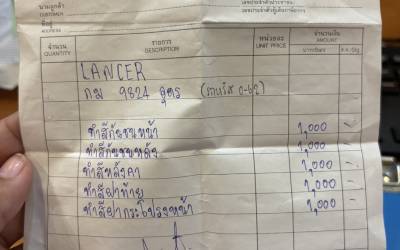 นามลูกค้า
CUSTOMER
ที่อยู่
ADDRESS
เลขประจำตัวประชาชน
เลขประจำตัวผู้เสียภาษีอากร
จำนวน
QUANTITY
รายการ
DESCRIPTION
หน่วยละ
UNIT PRICE
จำนวนเงิน
AMOUNT
LANCER
กม 9824 อุดร
ทำสีกันชนหน้า 1,000 -
ทำสีกันชนหลัง 1,000 -
ทำสีหลังคา 1,000 -
ทำสีฝาท้าย 1,000 -
ทำสีฝากระโปรงหน้า 1,000 -